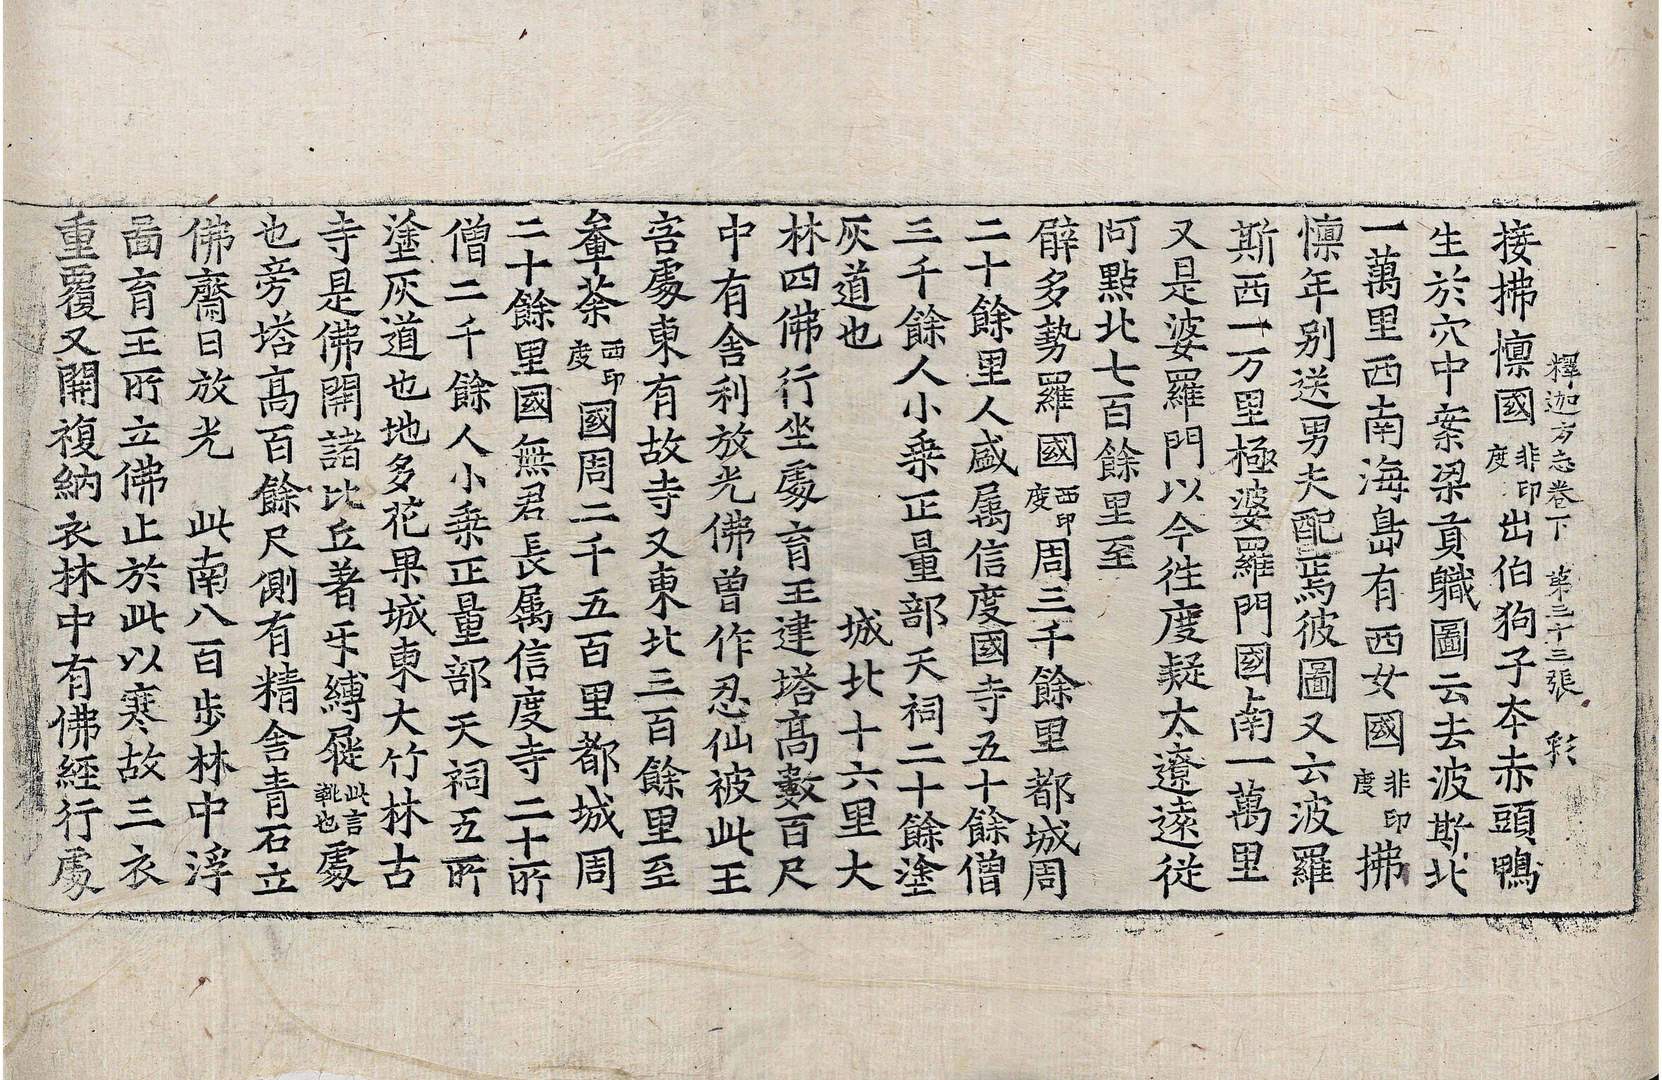 釋迦方志卷下　第三十三張　彩
接拂懍國非印度出伯狗子夲赤頭鴨
生於穴中案梁貢職圖云去波斯北
一萬里西南海島有西女國非印度拂
懍年别送男夫配焉彼圖又云波羅
斯西一万里極婆羅門國南一萬里
又是婆羅門以今往度疑太遼遠從
阿點北七百餘里至
臂多勢羅國西印度周三千餘里都城周
二十餘里人盛属信度國寺五十餘僧
三千餘人小乗正量部天祠二十餘塗
灰道也　城北十六里大
林四佛行坐處育王建塔高數百尺
中有舍利放光佛曽作忍仙被此王
害處東有故寺又東北三百餘里至
軬荼西印度國周二千五百里都城周
二十餘里國無君長属信度寺二十所
僧二千餘人小乗正量部天祠五所
塗灰道也地多花果城東大竹林古
寺是佛開諸比丘著牙縛屣此言靴也處
也旁塔高百餘尺側有精舍青石立
佛齋日放光　此南八百步林中浮
啚育王所立佛止於此以寒故三衣
重覆又開複納衣林中有佛經行處